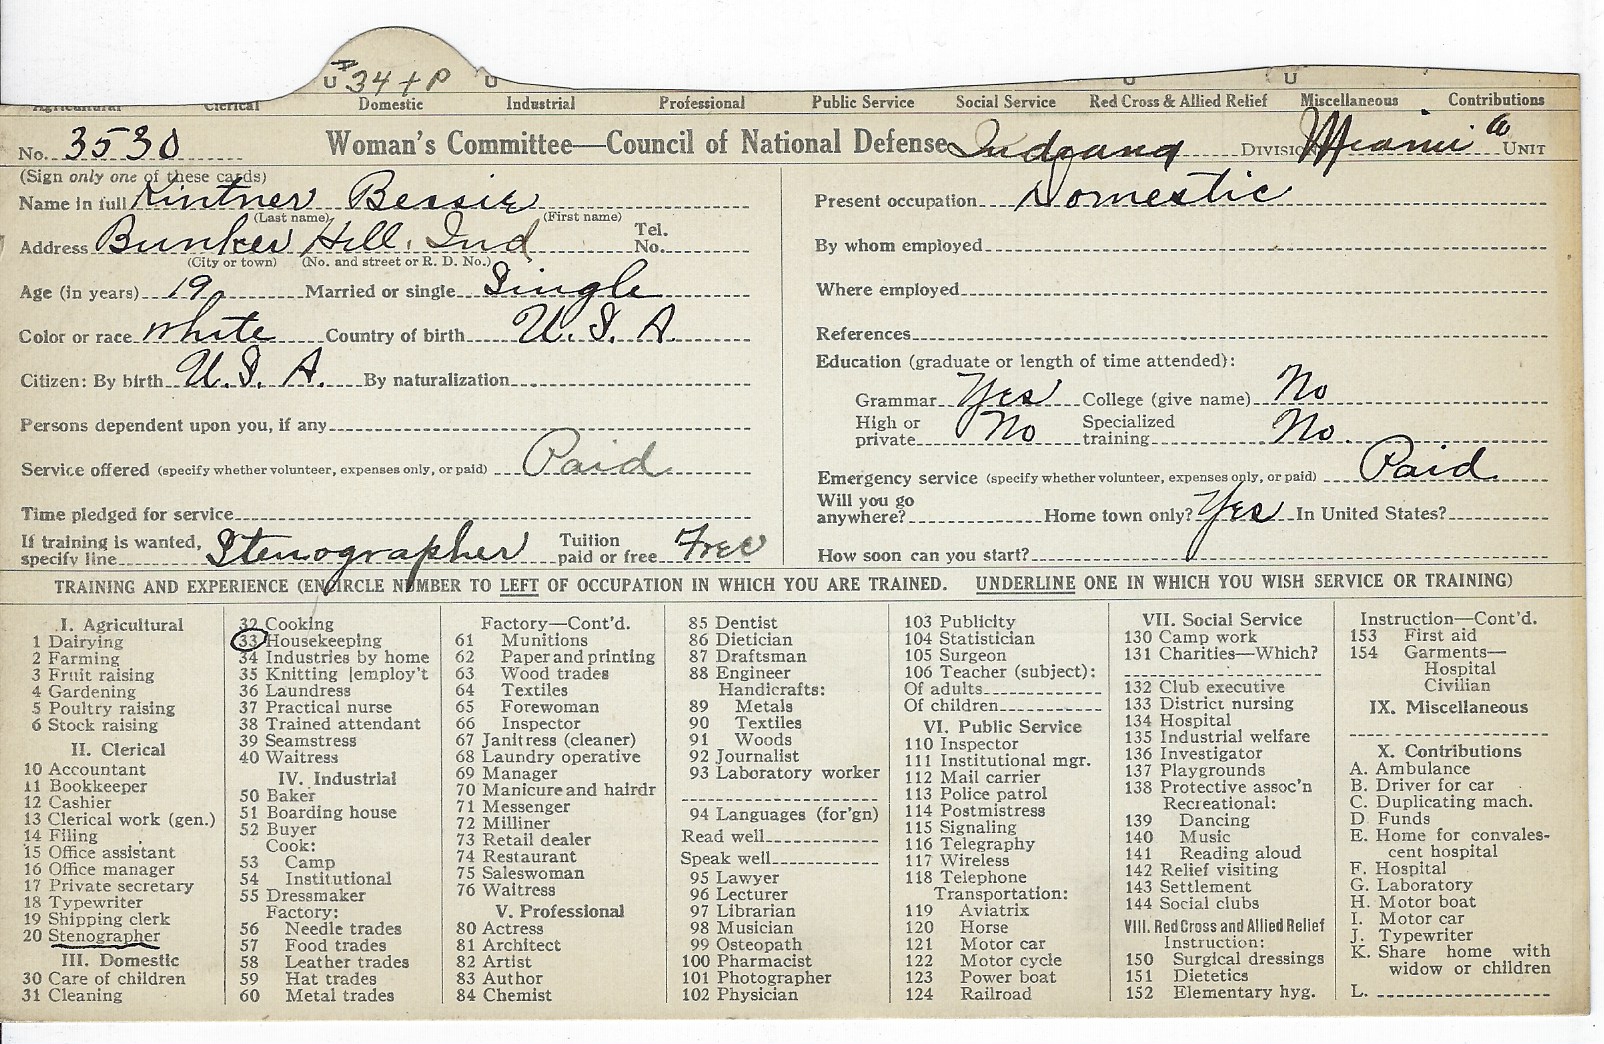 U 34 + P U U U
Agricultural Clerical Domestic Industrial Professional Public Service Social Service Red Cross & Allied Relief Miscellaneous Contributions
No. 3530 Woman's Committee—Council of National Defense Indiana DIVISION Miami Co UNIT
(Sign only one of these cards)
Name in full Kintner Bessie
(Last name) (First name)
Address Bunker Hill, Ind Tel. No.
(City or town) (No. and street or R. D. No.)
Age (in years) 19 Married or single Single
Color or race White Country of birth U. S. A.
Citizen: By birth U. S. A. By naturalization
Persons dependent upon you, if any
Service offered (specify whether volunteer, expenses only, or paid) Paid
Time pledged for service
If training is wanted, specify line Stenographer Tuition paid or free Free
Present occupation Domestic
By whom employed
Where employed
References
Education (graduate or length of time attended):
Grammar Yes College (give name) No
High or private No Specialized training No.
Emergency service (specify whether volunteer, expenses only, or paid) Paid
Will you go anywhere? Home town only? Yes In United States?
How soon can you start?
TRAINING AND EXPERIENCE (ENCIRCLE NUMBER TO LEFT OF OCCUPATION IN WHICH YOU ARE TRAINED. UNDERLINE ONE IN WHICH YOU WISH SERVICE OR TRAINING)
I. Agricultural
1 Dairying
2 Farming
3 Fruit raising
4 Gardening
5 Poultry raising
6 Stock raising
II. Clerical
10 Accountant
11 Bookkeeper
12 Cashier
13 Clerical work (gen.)
14 Filing
15 Office assistant
16 Office manager
17 Private secretary
18 Typewriter
19 Shipping clerk
20 Stenographer
III. Domestic
30 Care of children
31 Cleaning
32 Cooking
33 Housekeeping
34 Industries by home
35 Knitting [employ't
36 Laundress
37 Practical nurse
38 Trained attendant
39 Seamstress
40 Waitress
IV. Industrial
50 Baker
51 Boarding house
52 Buyer
Cook:
53 Camp
54 Institutional
55 Dressmaker
Factory:
56 Needle trades
57 Food trades
58 Leather trades
59 Hat trades
60 Metal trades
Factory—Cont'd.
61 Munitions
62 Paper and printing
63 Wood trades
64 Textiles
65 Forewoman
66 Inspector
67 Janitress (cleaner)
68 Laundry operative
69 Manager
70 Manicure and hairdr
71 Messenger
72 Milliner
73 Retail dealer
74 Restaurant
75 Saleswoman
76 Waitress
V. Professional
80 Actress
81 Architect
82 Artist
83 Author
84 Chemist
85 Dentist
86 Dietician
87 Draftsman
88 Engineer
Handicrafts:
89 Metals
90 Textiles
91 Woods
92 Journalist
93 Laboratory worker
94 Languages (for'gn)
Read well
Speak well
95 Lawyer
96 Lecturer
97 Librarian
98 Musician
99 Osteopath
100 Pharmacist
101 Photographer
102 Physician
103 Publicity
104 Statistician
105 Surgeon
106 Teacher (subject):
Of adults
Of children
VI. Public Service
110 Inspector
111 Institutional mgr.
112 Mail carrier
113 Police patrol
114 Postmistress
115 Signaling
116 Telegraphy
117 Wireless
118 Telephone
Transportation:
119 Aviatrix
120 Horse
121 Motor car
122 Motor cycle
123 Power boat
124 Railroad
VII. Social Service
130 Camp work
131 Charities—Which?
132 Club executive
133 District nursing
134 Hospital
135 Industrial welfare
136 Investigator
137 Playgrounds
138 Protective assoc'n
Recreational:
139 Dancing
140 Music
141 Reading aloud
142 Relief visiting
143 Settlement
144 Social clubs
VIII. Red Cross and Allied Relief
Instruction:
150 Surgical dressings
151 Dietetics
152 Elementary hyg.
Instruction—Cont'd.
153 First aid
154 Garments—
Hospital
Civilian
IX. Miscellaneous
X. Contributions
A. Ambulance
B. Driver for car
C. Duplicating mach.
D. Funds
E. Home for convales-
cent hospital
F. Hospital
G. Laboratory
H. Motor boat
I. Motor car
J. Typewriter
K. Share home with
widow or children
L.